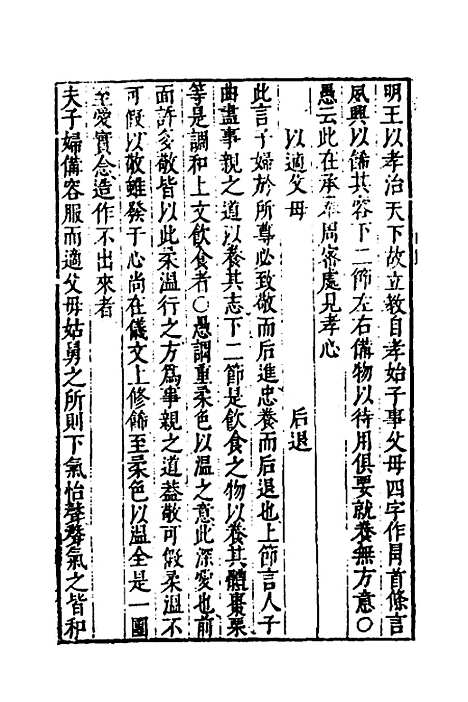 明王以孝治天下故立教自孝始子事父母四字作冒首條言
夙興以飾其容下二節左右備物以待用俱要就養無方意〇
愚云此在承奉周密處見孝心
以適父母　后退
此言子婦於所尊必致敬而后進忠養而后退也上節言人子
曲盡事親之道以養其志下二節是飲食之物以養其體棗栗
等是調和上文飲食者〇愚謂重柔色以溫之意此深愛也前
面許多敬皆以此柔溫行之方為事親之道葢敬可假柔溫不
可假以敬雖發于心尚在儀文上修飾至柔色以溫全是一團
至愛實念造作不出來者
夫子婦備容服而適父母姑舅之所則下氣怡聲聲氣之皆和